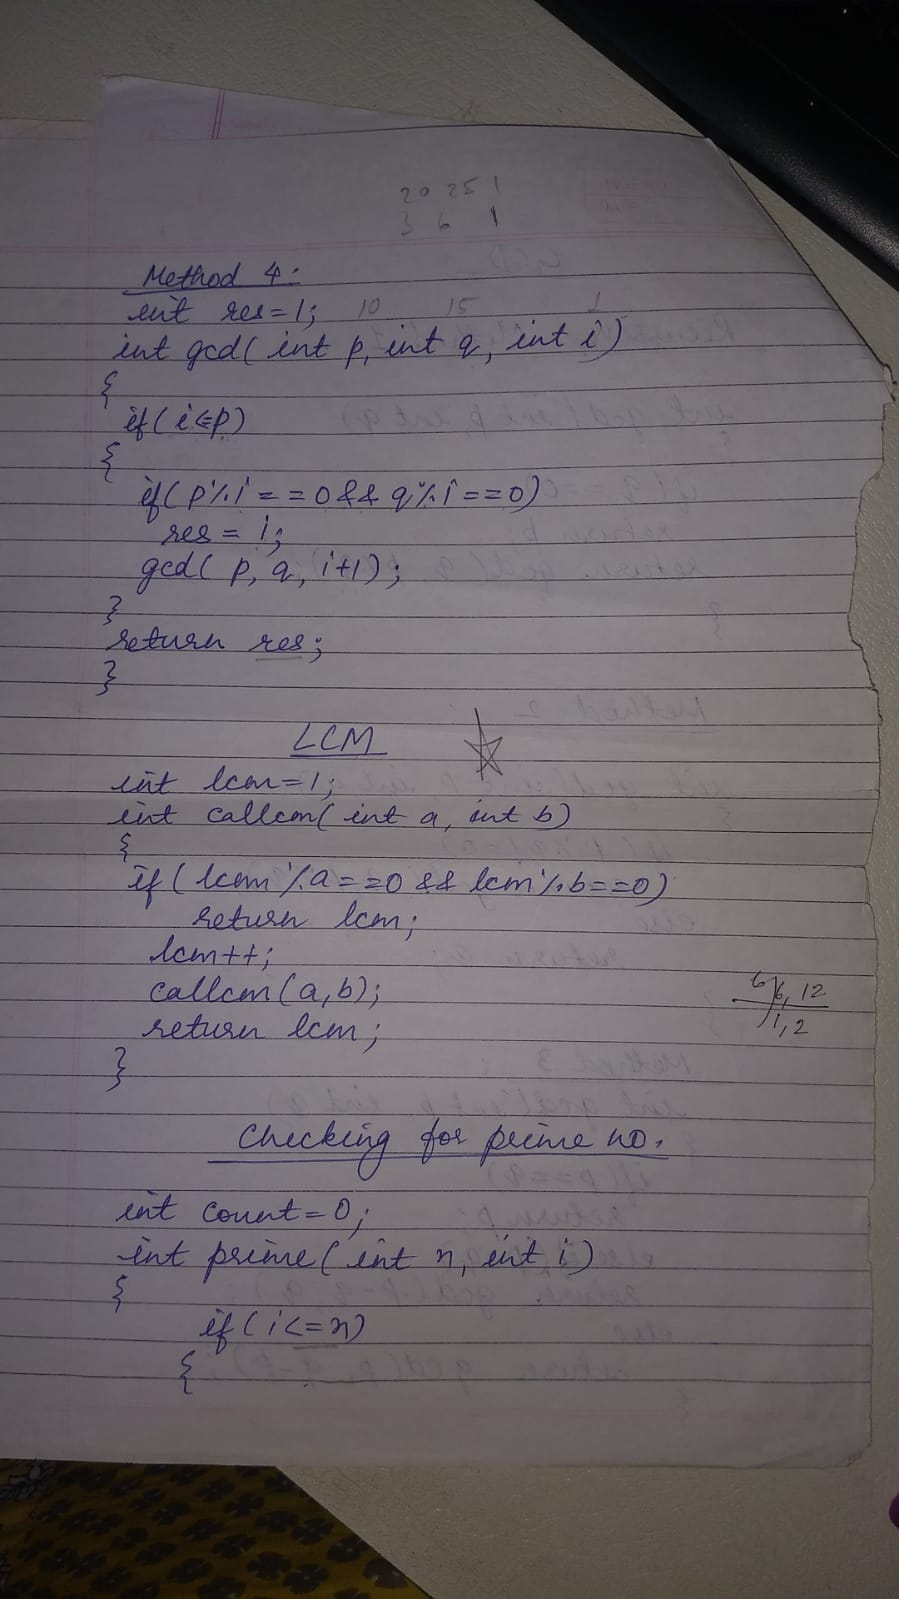 20 25 1
3 6 1
Method 4:
int res=1; 10 15 1
int gcd( int p, int q, int i)
{
if( i<=p)
{
if( p%i==0 && q%i==0)
res = i;
gcd( p, q, i+1);
}
return res;
}
LCM
int lcm=1;
int callcm( int a, int b)
{
if( lcm%a==0 && lcm%b==0)
return lcm;
lcm++;
callcm(a,b);
6 6, 12
return lcm;
1, 2
}
Checking for prime no.
int count=0;
int prime( int n, int i)
{
if( i<=n)
{